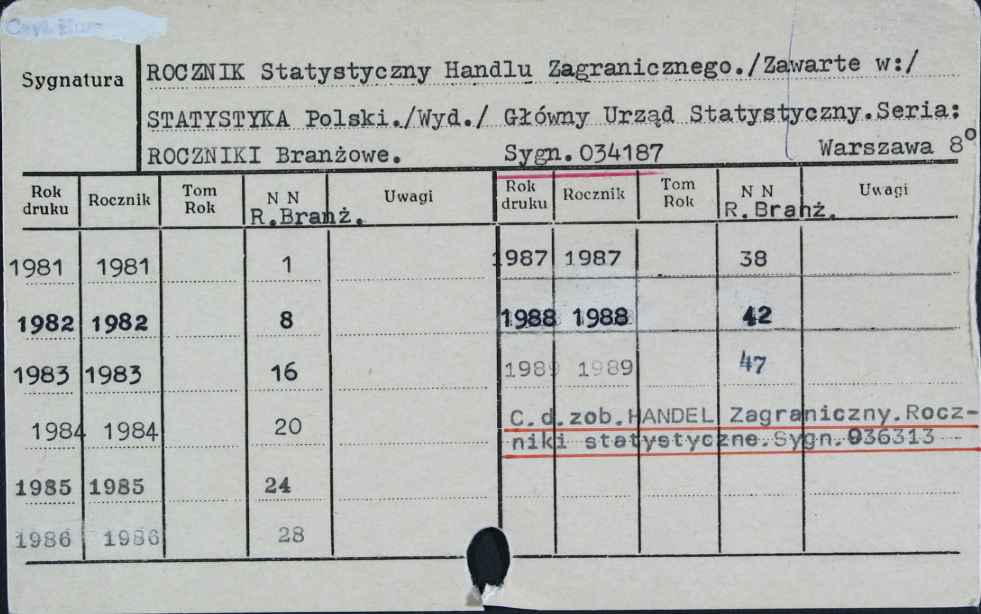 Sygnatura
ROCZNIK Statystyczny Handlu Zagranicznego./Zawarte w:/
STATYSTYKA Polski./Wyd./ Główny Urząd Statystyczny.Seria:
ROCZNIKI Branżowe. Sygn.034187 Warszawa 8°
Rok druku Rocznik Tom Rok N N R.Branż. Uwagi
1981 1981 1
1982 1982 8
1983 1983 16
1984 1984 20
1985 1985 24
1986 1986 28
Rok druku Rocznik Tom Rok N N R.Branż. Uwagi
1987 1987 38
1988 1988 42
1989 1989 47
C.d.zob.HANDEL Zagraniczny.Rocz-
niki statystyczne.Sygn.036313